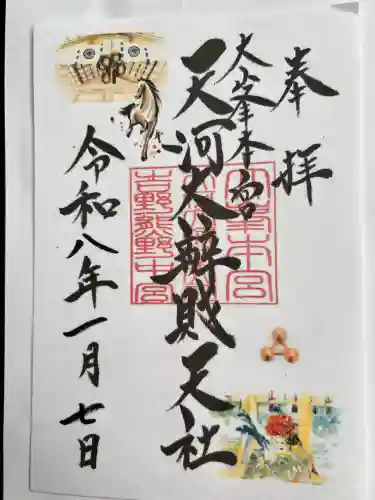 奉拝
大峯本宮
天河大辨財天社
令和八年一月七日
大峯本宮
吉野熊野中宮